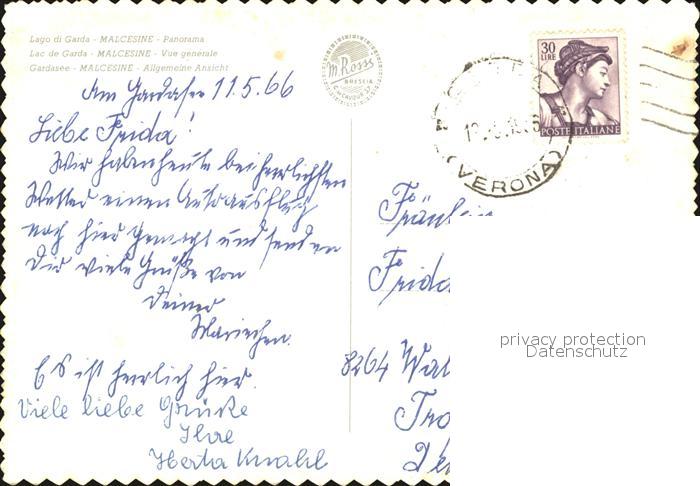 Lago di Garda - MALCESINE - Panorama
Lac de Garda - MALCESINE - Vue générale
Gardasee - MALCESINE - Allgemeine Ansicht
M. Ross
BRESCIA
30
LIRE
POSTE ITALIANE
(VERONA)
Am Gardasee 11.5.66
Liebe Frida!
Wir haben heute bei herrlichsten
Wetter einen Autoausflug
nach hier gemacht und senden
Dir viele Grüße von
Deiner
Mariechen.
Es ist herrlich hier.
Viele liebe Grüße
Ihre
Herta Knahl
Fräulein
Frida
8264 Wal
privacy protection
Datenschutz